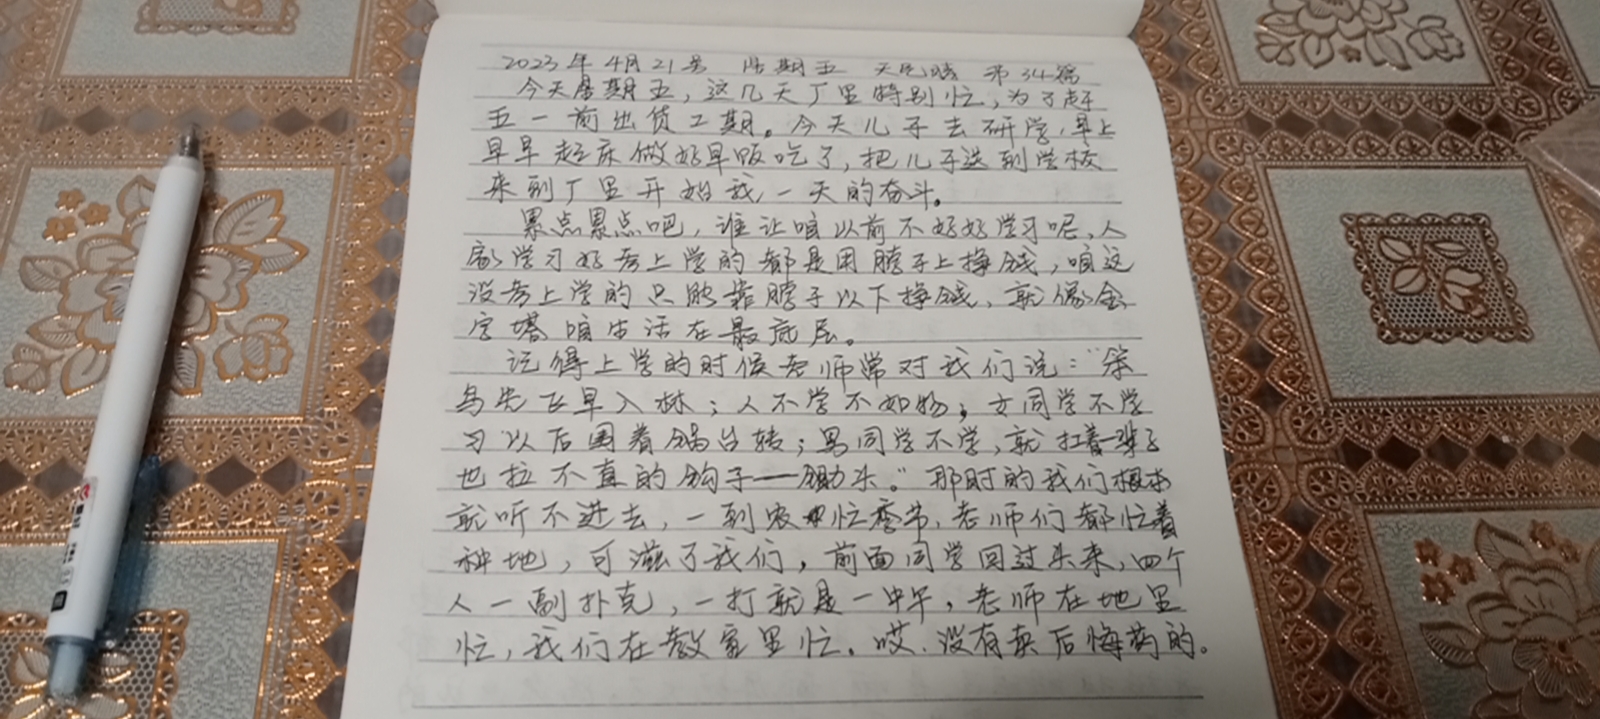 2023年4月21号 星期五 天气晴 第34篇
今天星期五，这几天厂里特别忙，为了赶
五一前出货工期。今天儿子去研学，早上
早早起床做好早饭吃了，把儿子送到学校
来到厂里开始我一天的奋斗。
累点累点吧，谁让咱以前不好好学习呢，人
家学习好考上学的都是用脖子上挣钱，咱这
没考上学的只能靠脖子以下挣钱，就像金
字塔咱生活在最底层。
记得上学的时候老师常对我们说：“笨
鸟先飞早入林；人不学不如物；女同学不学
习以后围着锅台转；男同学不学，就扛着一辈子
也拉不直的钩子——锄头。”那时的我们根本
就听不进去，一到农忙季节，老师们都忙着
种地，可滋了我们，前面同学回过头来，四个
人一副扑克，一打就是一中午，老师在地里
忙，我们在教室里忙。哎．没有卖后悔药的。